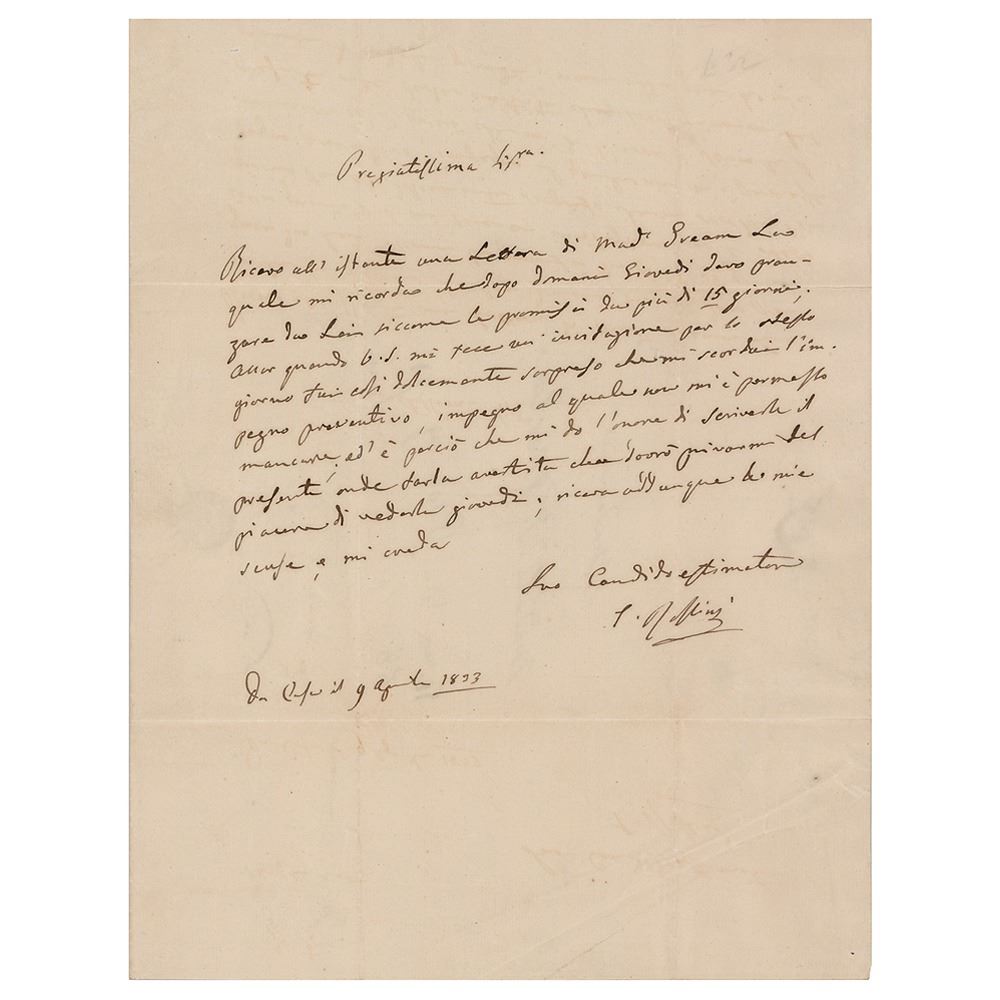 Pregiatissima Sig.ra
Ricevo all' istante una Lettera di Mad.a Gream La
quale mi ricorda che dopo domani Giovedi devo pran-
zare da Lei siccome le promisi da più di 15 giorni;
allor quando V.S. mi fece un' invitazione per lo stesso
giorno fui così dolcemente sorpreso che mi scordai l'im-
pegno preventivo, impegno al quale non mi è permesso
mancare, ed' è perciò che mi do l'onore di scriverle il
presente onde farla avertita che dovrò privarmi del
piacere di vederla giovedì; riceva addunque le mie
scuse e mi creda
Suo Candido estimatore
G. Rossini
Da Casa il 9 Aprile 1833